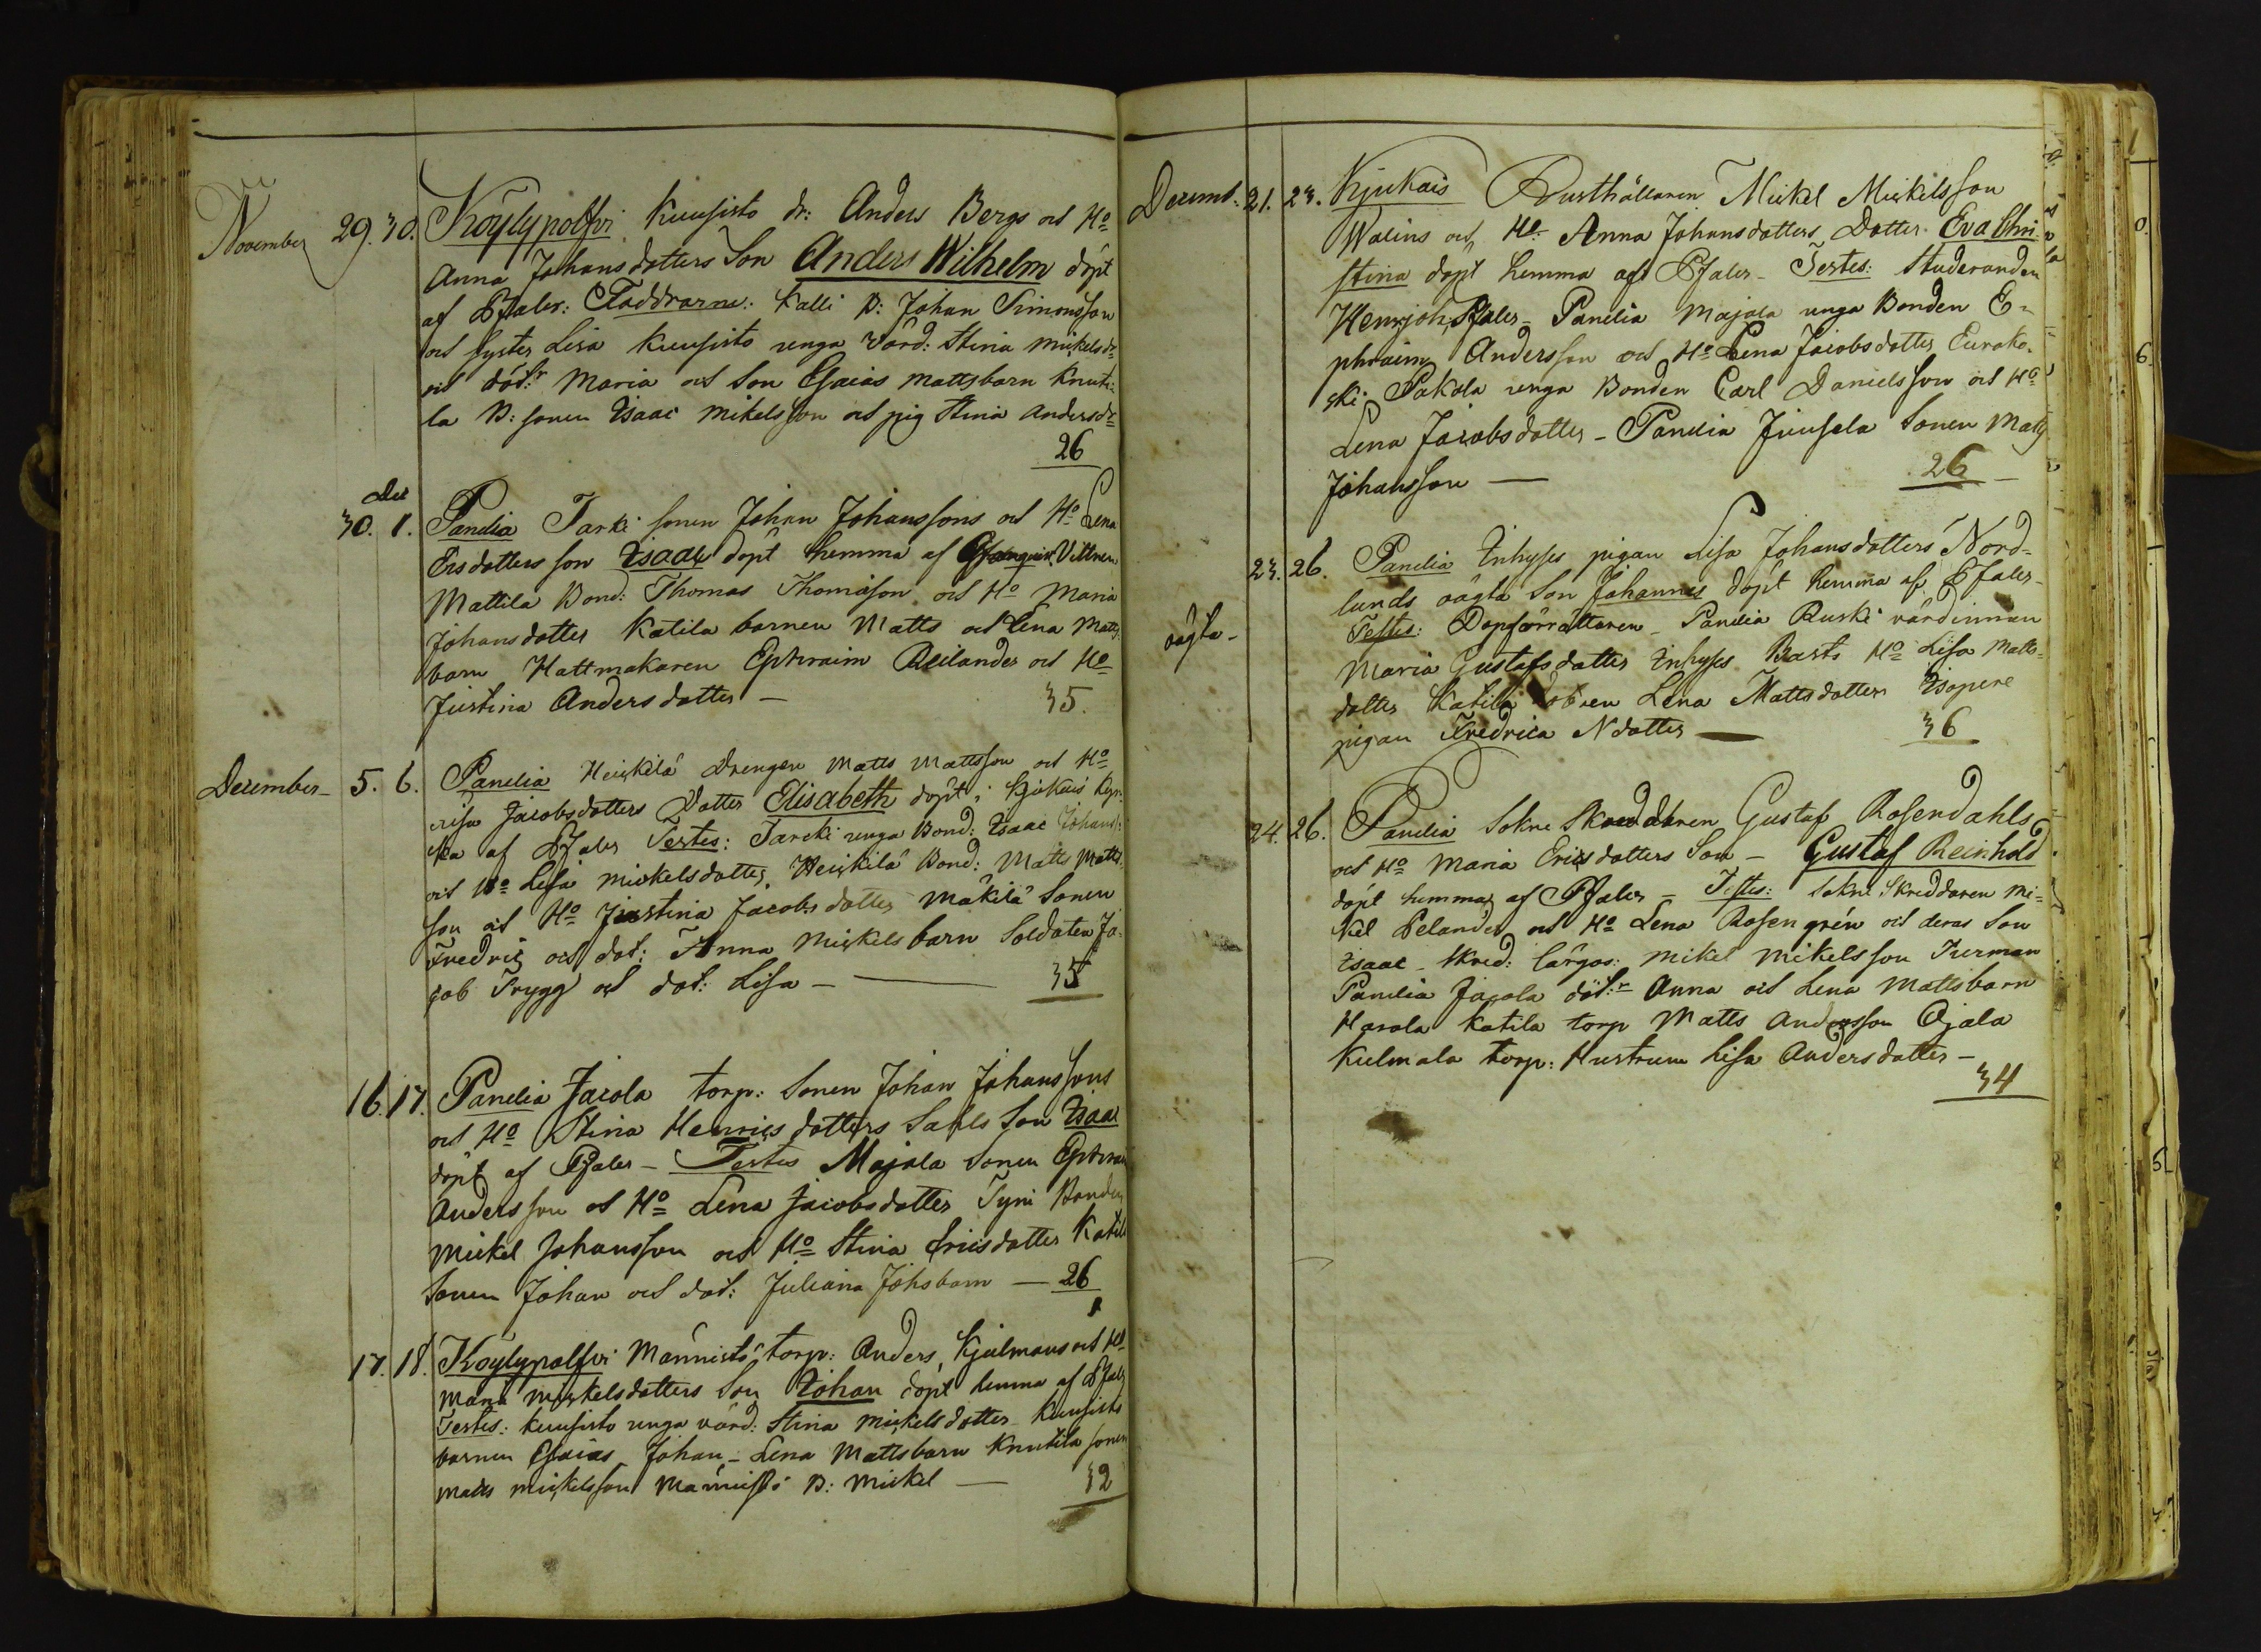 November 29. 30. Köylypolfvi Kuusisto dr: Anders Bergs och Ho
Anna Johansdotters Son Anders Wilhelm döpt
af Pfaler: Faddrarne: Kalli B: Johan Simonsson
och Syster Lisa Kuusisto unga värd: Stina Mickelsdr
och döt:r Maria och Son Esaias Mattsbarn Knuti-
la B: sonen Isaac Mikelsson och pig Stina Andersdr
26
Dec
30. 1. Panelia Tarki sonen Johan Johanssons och Ho Lena
Ersdotters son Isaac döpt hemma af Vittnen
Mattila Bond: Thomas Thomasson och Ho Maria
Johansdotter Katila barnen Matts och Lena Matts
barn Hattmakaren Ephraim Reilander och Ho
Justina Andersdotter — 35.
December 5. 6. Panelia Heickilä Drengen Matts Mattsson och Ho
Lisa Jacobsdotters Dotter Elisabeth döpt i Kjukais Kyr-
ka af Pfaler Testes: Tarcki unga Bond: Isaac Johans:
och Ho Lisa Mickelsdotter, Heickilä Bond: Matts Matts
son och Ho Justina Jacobsdotter Mäkilä Sonen
Fredric och dot: Anna Mickelsbarn Soldaten Ja-
cob Trygg och dot: Lisa — 35
16. 17. Panelia Jacola torp: Sonen Johan Johanssons
och Ho Stina Henricsdotters Sahls Son Isaac
döpt af Pfaler — Testes Majala Sonen Ephraim
Andersson och Ho Lena Jacobsdotter Tyni Bonden
Mickel Johansson och Ho Stina Ericsdotter Katila
Sonen Johan och dot: Juliana Johsbarn — 26
17. 18. Köylypolfvi Männistö torp: Anders Kjulmans och Ho
Maria Mickelsdotters Son Johan döpt hemma af Pfaler
Testes: Kuusisto unga värd: Stina Mickelsdotter Kuusisto
barnen Esaias Johan — Lena Mattsbarn Knutila sonen
Matts Mickelsson Männistö B: Mickel — 32
Decemb: 21. 23. Kjukais Rusthållaren Mickel Mickelsson
Walins och Ho Anna Johansdotters Dotter Eva Chri-
stina döpt hemma af Pfaler — Testes: Studeranden
Henr Joh: Pfaler — Panelia Majala unga Bonden E-
phraim Andersson och Ho Lena Jacobsdotter Eurako-
ski Pakola unga Bonden Carl Danielsson och Ho
Lena Jacobsdotter — Panelia Juusela Sonen Matts
Johansson — 26
oägta — 23. 26. Panelia Inhyses pigan Lisa Johansdotters Nord-
lunds oägta Son Johannes döpt hemma af Pfaler —
Testes: Dopförrättaren — Panelia Ruski värdinnan
Maria Gustafsdotter Inhyses Basts Ho Lisa Matts-
dotter Katila dotren Lena Mattsdotter Isopere
pigan Fredrica N dotter — 36
24. 26. Panelia Sokne Skreddaren Gustaf Rosendahls
och Ho Maria Ericsdotters Son — Gustaf Reinhold
döpt hemma af Pfaler — Testes: Sokne Skreddaren Mi-
kel Pelander och Ho Lena Rosengrén och deras Son
Isaac — Skred: lärgos: Mikel Mikelsson Turman
Panelia Jacola döt:r Anna och Lena Mattsbarn
Harola Katila torp Matts Andersson Ojala
Kulmala torp: Hustrun Lisa Andersdotter —
34